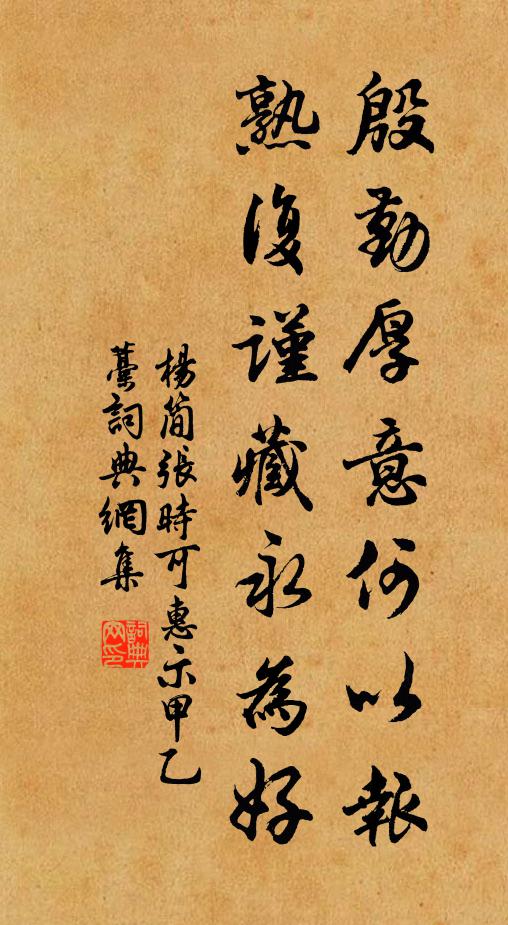 殷勤厚意何以報
熟復謹藏永為好
楊简張時可惠示甲乙
藁詞典網集
詞典
网印